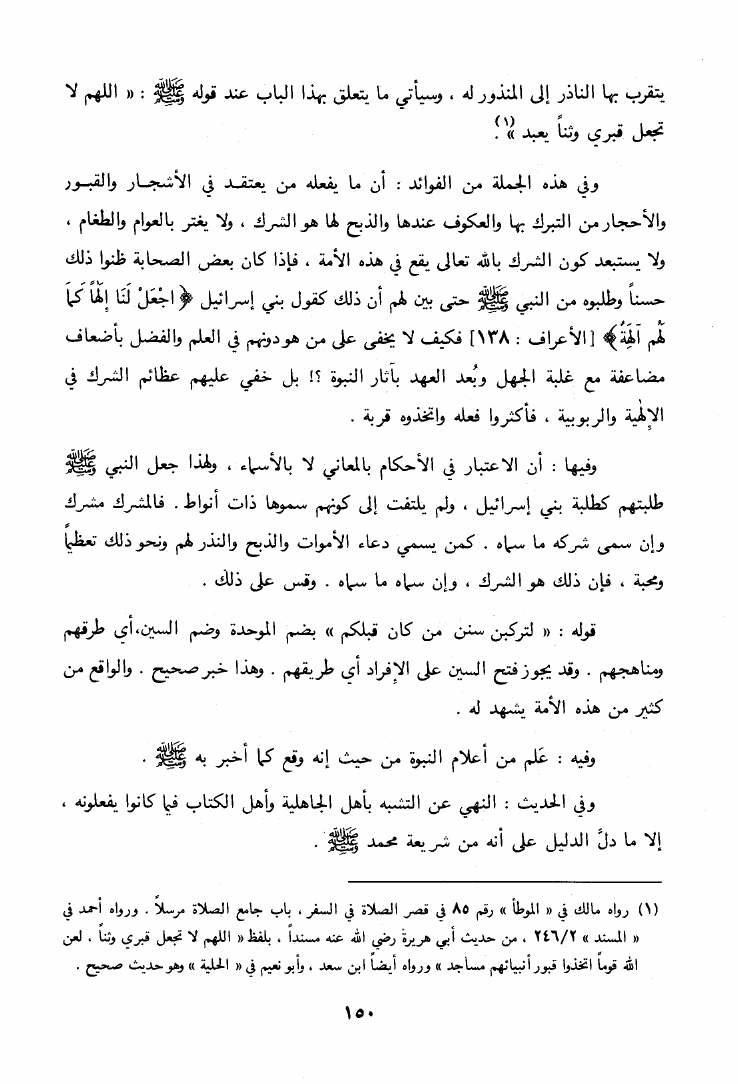 يتقرب بها الناذر إلى المنذور له ، وسيأتي ما يتعلق بهذا الباب عند قوله ﷺ : « اللهم لا
تجعل قبري وثناً يعبد »(١).
وفي هذه الجملة من الفوائد : أن ما يفعله من يعتقـد في الأشجـار والقبـور
والأحجار من التبرك بها والعكوف عندها والذبح لها هو الشرك ، ولا يغتر بالعوام والطغام ،
ولا يستبعد كون الشرك بالله تعالى يقع في هذه الأمة ، فإذا كان بعض الصحابة ظنوا ذلك
حسناً وطلبوه من النبي ﷺ حتى بين لهم أن ذلك كقول بني إسرائيل ﴿ اجْعَلْ لَنَا إِلَهَاً كَمَا
لَهُم آلِهَةٌ ﴾ [ الأعراف : ١٣٨ ] فكيف لا يخفى على من هو دونهم في العلم والفضل بأضعاف
مضاعفة مع غلبة الجهل وبُعد العهد بآثار النبوة ؟! بل خفي عليهم عظائم الشرك في
الإلهية والربوبية ، فأكثروا فعله واتخذوه قربة .
وفيها : أن الاعتبار في الأحكام بالمعاني لا بالأسماء ، ولهذا جعل النبي ﷺ
طلبتهم كطلبة بني إسرائيل ، ولم يلتفت إلى كونهم سموها ذات أنواط . فالمشرك مشرك
وإن سمى شركه ما سماه . كمن يسمي دعاء الأموات والذبح والنذر لهم ونحو ذلك تعظيماً
ومحبة ، فإن ذلك هو الشرك ، وإن سماه ما سماه . وقس على ذلك .
قوله : « لتركبن سنن من كان قبلكم » بضم الموحدة وضم السين،أي طرقهم
ومناهجهم . وقد يجوز فتح السين على الإفراد أي طريقهم . وهذا خبر صحيح . والواقع من
كثير من هذه الأمة يشهد له .
وفيه : عَلم من أعلام النبوة من حيث إنه وقع كما أخبر به ﷺ .
وفي الحديث : النهي عن التشبه بأهل الجاهلية وأهل الكتاب فيما كانوا يفعلونه ،
إلا ما دلَّ الدليل على أنه من شريعة محمد ﷺ .
(١) رواه مالك في « الموطأ » رقم ٨٥ في قصر الصلاة في السفر ، باب جامع الصلاة مرسلاً . ورواه أحمد في
« المسند » ٢٤٦/٢ ، من حديث أبي هريرة رضي الله عنه مسنداً ، بلفظ « اللهم لا تجعل قبري وثناً ، لعن
الله قوماً اتخذوا قبور أنبيائهم مساجد » ورواه أيضاً ابن سعد ، وأبو نعيم في « الحلية » وهو حديث صحيح .
١٥٠